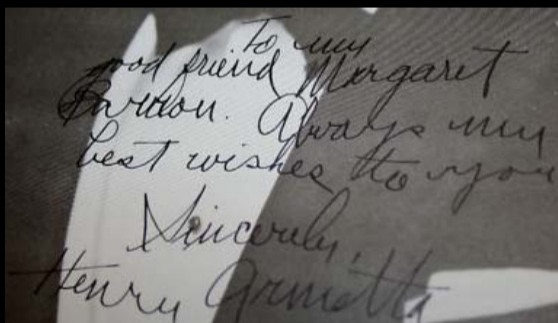 To my
good friend Margaret
Barron. Always my
best wishes to you
Sincerely,
Henry Armetta